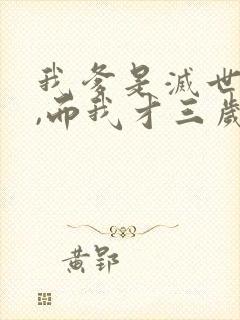 我爹是滅世
,而我才三歲
黄郢